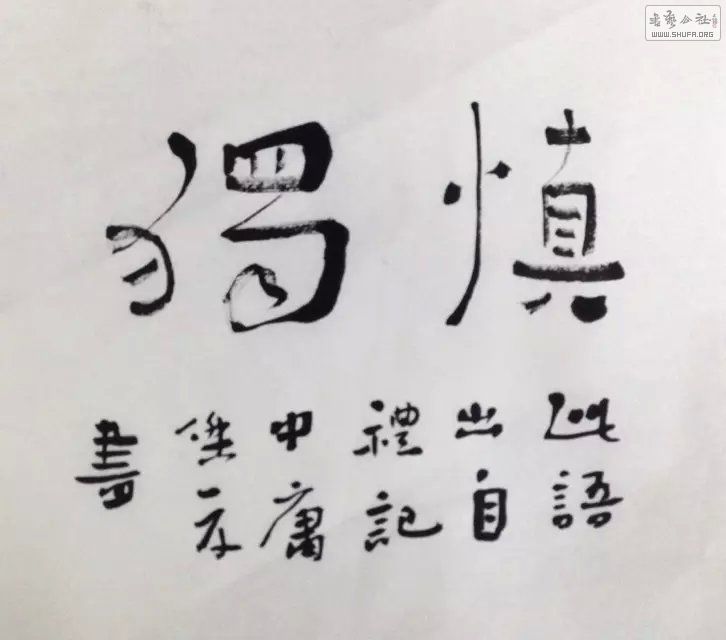 慎獨
此語
出自
禮記
中庸
書
書藝公社
WWW.SHUFA.ORG